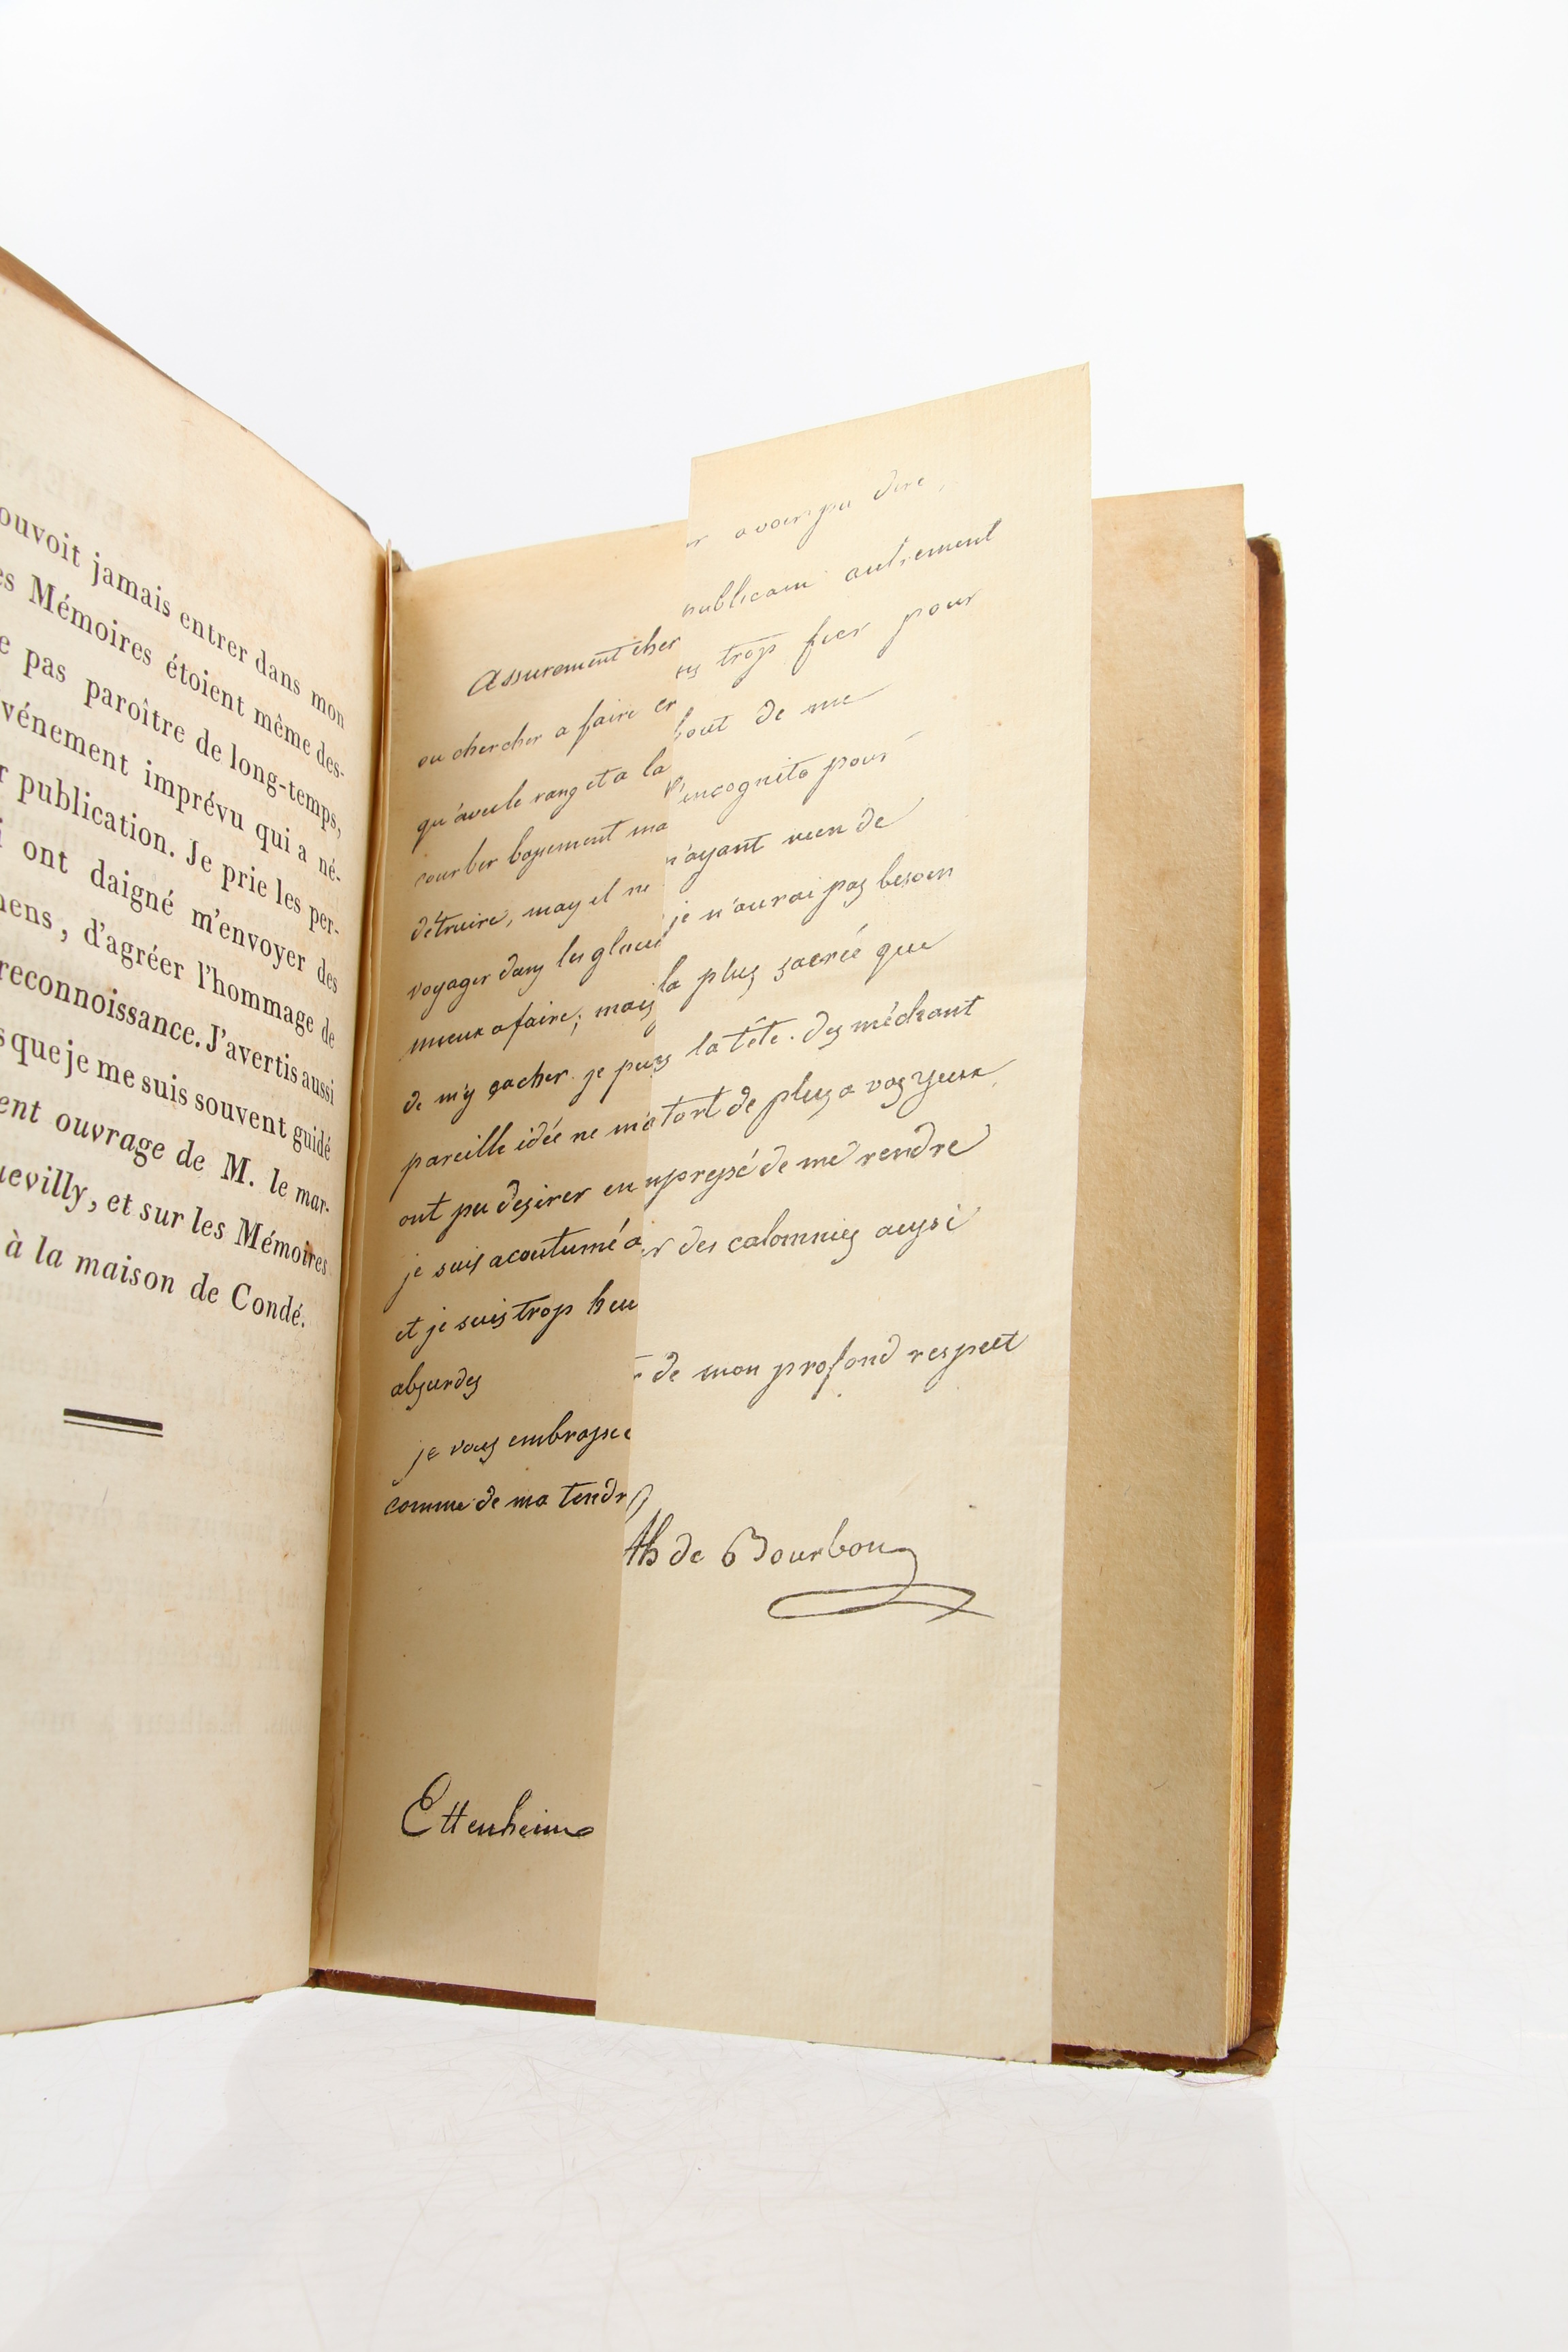 ouvoit jamais entrer dans mon
es Mémoires étoient même des-
e pas paroître de long-temps,
vénement imprévu qui a né-
r publication. Je prie les per-
i ont daigné m'envoyer des
nens, d'agréer l'hommage de
reconnoissance. J'avertis aussi
s que je me suis souvent guidé
ent ouvrage de M. le mar-
uevilly, et sur les Mémoires
à la maison de Condé.
Assurement cher
ou chercher a faire cr
qu'avec le rang et a la
courber bassement ma
détruire, mays il ne
voyager dans les glaces
mieux a faire; mais
de m'y cacher. je puis
pareille idée ne m'a
ont pu desirer en
je suis acoutumé a
et je suis trop heu
absurdes
je vous embrasse
comme de ma tendr
Ettenheim
r avoir pu dire
publicain autrement
ms trop fier pour
bout de me
l'incognito pour
n'ayant rien de
je n'aurai pas besoin
la plus sacrée que
la tête. des méchant
tort de plus a vos yeux
mpressé de me rendre
er des calomnies aussi
de mon profond respect
th de Bourbon